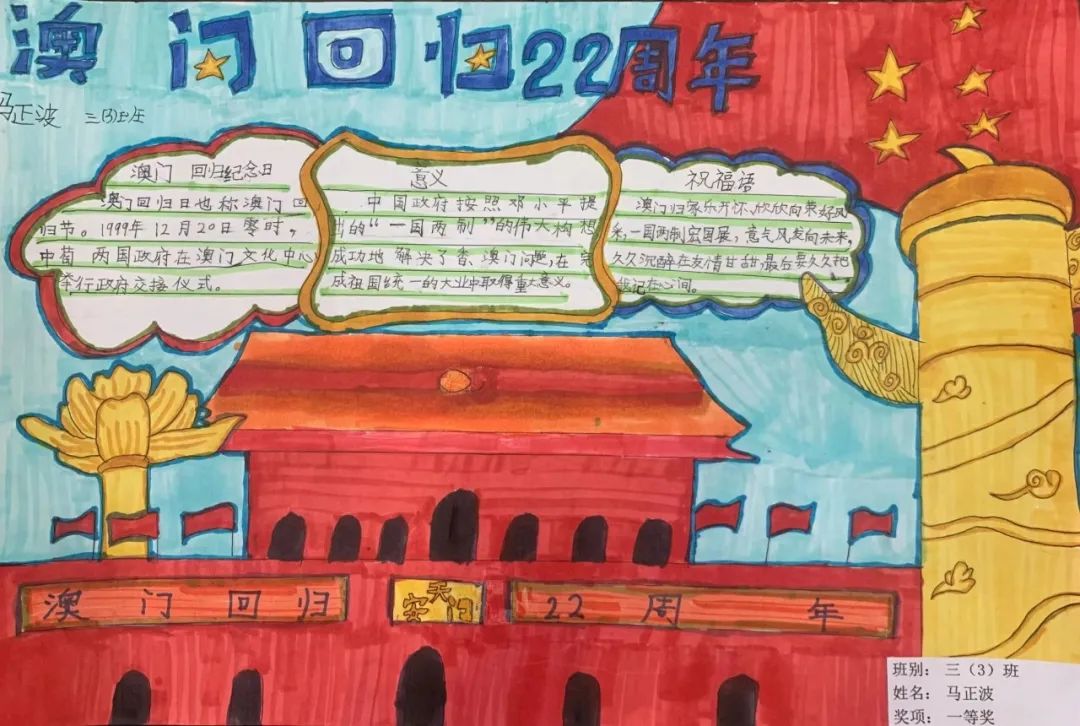 澳门回归22周年
马正波 三(3)班
澳门 回归纪念日
澳门回归日也称澳门回
归节。1999年12月20日零时，
中葡 两国政府在澳门文化中心
举行政府交接仪式。
意义
中国政府按照邓小平提
出的“一国两制”的伟大构想
成功地解决了香、澳门问题，在完
成祖国统一的大业中取得重大意义。
祝福语
澳门归家乐开怀、欣欣向荣好风
采，一国两制宏图展，意气风发向未来，
久久沉醉在友情甘甜，最后要久久把
记在心间。
澳门回归
天安门
22周年
班别：三（3）班
姓名：马正波
奖项：一等奖